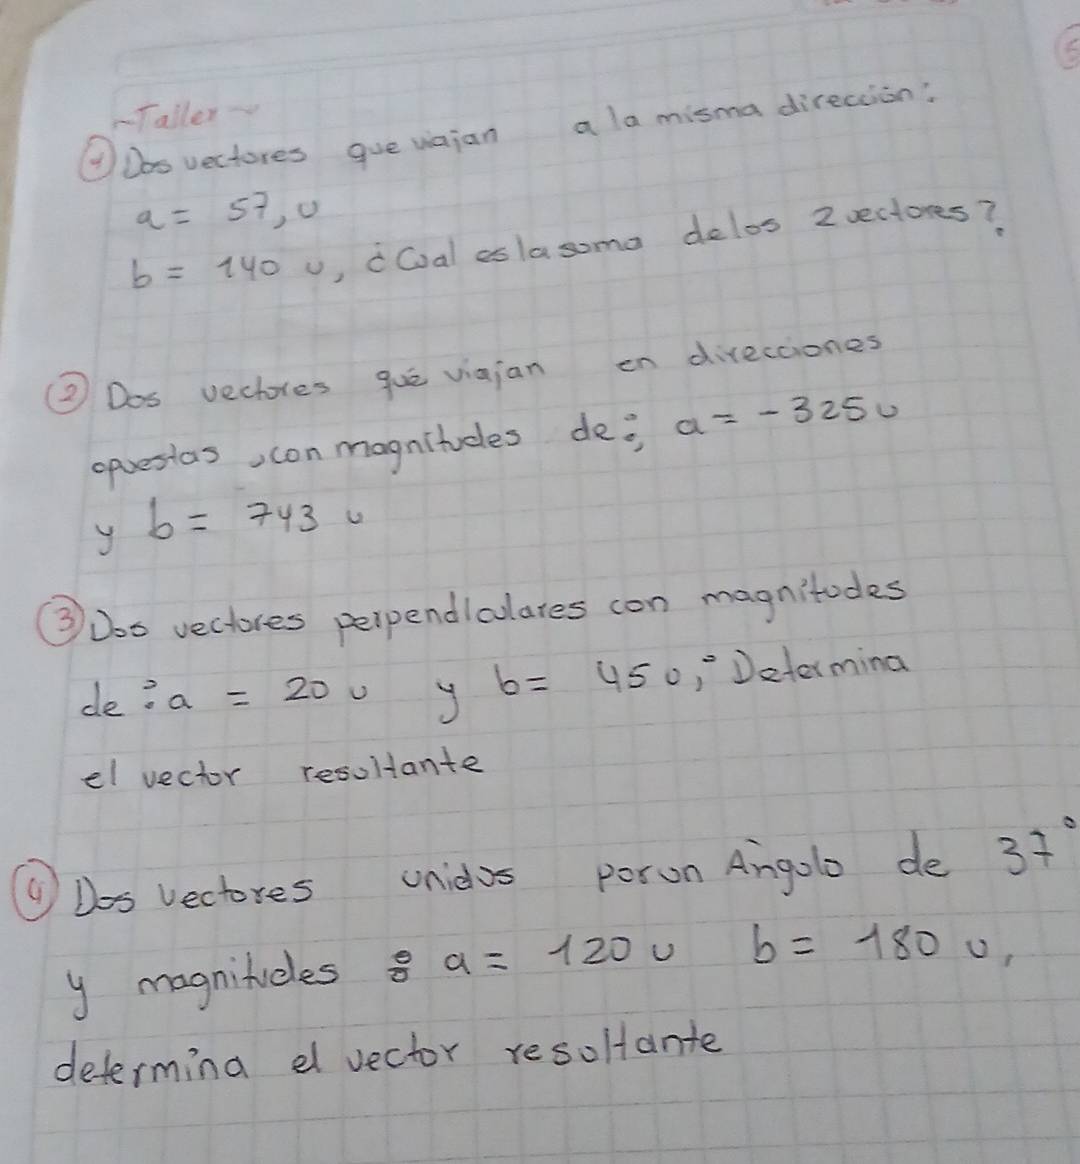 ~Taller~
① Dos vectores que viajan a la misma dirección:
a = 57, u
b = 140 u, ¿Cual es la suma de los 2 vectores?
② Dos vectores que viajan en direcciones
opuestas, con magnitudes de: a = -325 u
y b = 743 u
③ Dos vectores perpendiculares con magnitudes
de: a = 20 u y b = 45 u; Determina
el vector resultante
④ Dos vectores unidos por un Ángulo de 37°
y magnitudes: a = 120 u b = 180 u,
determina el vector resultante